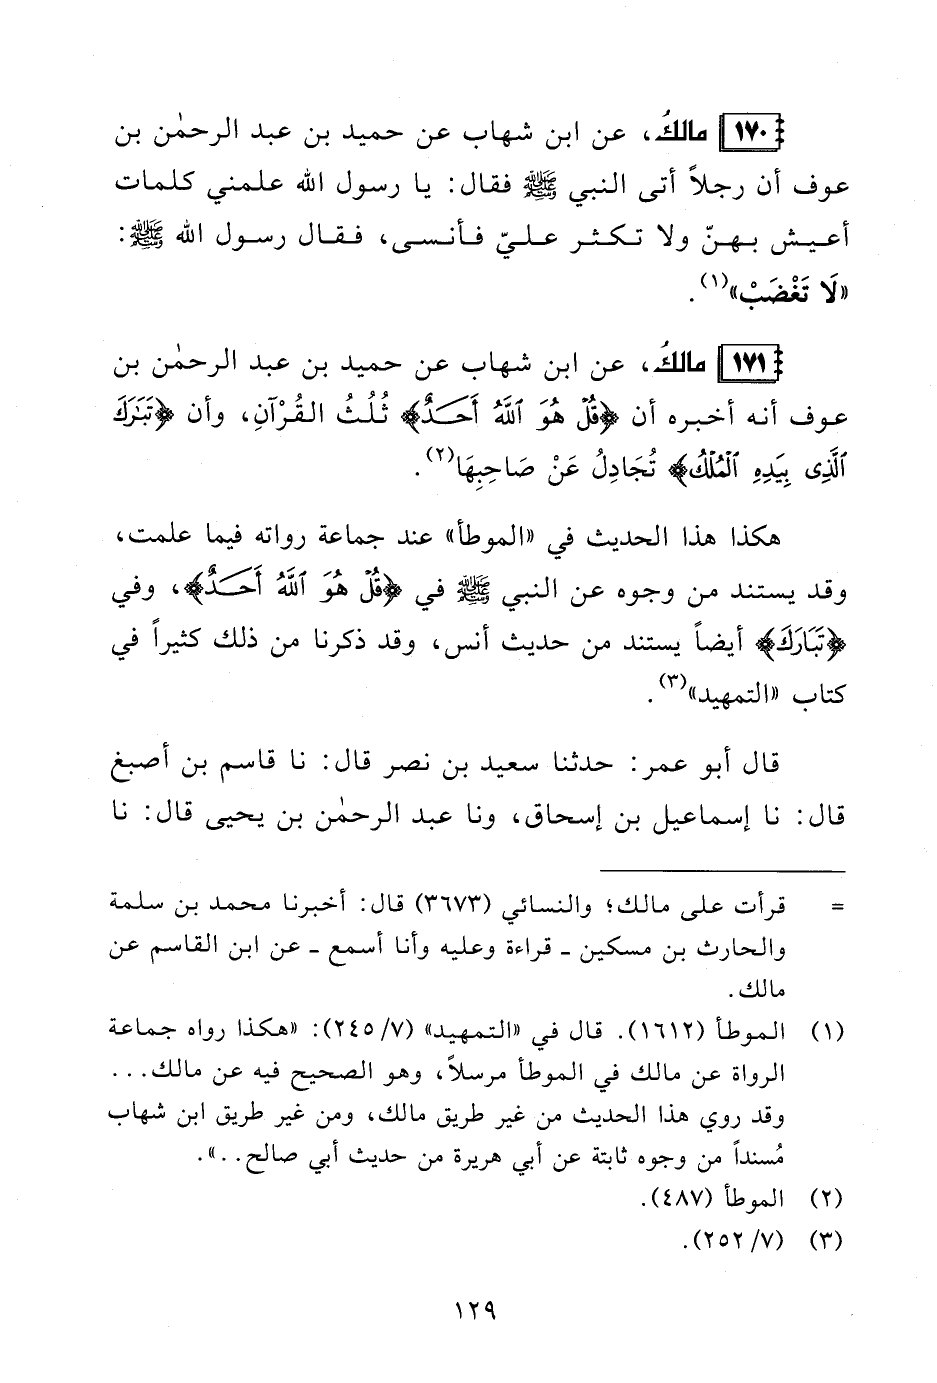 ١٧٠ مالكُ، عن ابن شهاب عن حميد بن عبد الرحمٰن بن
عوف أن رجلاً أتى النبي ﷺ فقال: يا رسول الله علمني كلمات
أعيش بهنّ ولا تكثر عليّ فأنسى، فقال رسول الله ﷺ:
«لَا تَغْضَبْ»(١).
١٧١ مالكُ، عن ابن شهاب عن حميد بن عبد الرحمٰن بن
عوف أنه أخبره أن ﴿قُلْ هُوَ ٱللَّهُ أَحَدٌ﴾ ثُلُثُ القُرْآنِ، وأن ﴿تَبَٰرَكَ
ٱلَّذِى بِيَدِهِ ٱلْمُلْكُ﴾ تُجَادِلُ عَنْ صَاحِبِهَا(٢).
هكذا هذا الحديث في «الموطأ» عند جماعة رواته فيما علمت،
وقد يستند من وجوه عن النبي ﷺ في ﴿قُلْ هُوَ ٱللَّهُ أَحَدٌ﴾، وفي
﴿تَبَارَكَ﴾ أيضاً يستند من حديث أنس، وقد ذكرنا من ذلك كثيراً في
كتاب «التمهيد»(٣).
قال أبو عمر: حدثنا سعيد بن نصر قال: نا قاسم بن أصبغ
قال: نا إسماعيل بن إسحاق، ونا عبد الرحمٰن بن يحيى قال: نا
= قرأت على مالك؛ والنسائي (٣٦٧٣) قال: أخبرنا محمد بن سلمة
والحارث بن مسكين ـ قراءة وعليه وأنا أسمع ـ عن ابن القاسم عن
مالك.
(١) الموطأ (١٦١٢). قال في «التمهيد» (٧/ ٢٤٥): «هكذا رواه جماعة
الرواة عن مالك في الموطأ مرسلاً، وهو الصحيح فيه عن مالك...
وقد روي هذا الحديث من غير طريق مالك، ومن غير طريق ابن شهاب
مُسنداً من وجوه ثابتة عن أبي هريرة من حديث أبي صالح..».
(٢) الموطأ (٤٨٧).
(٣) (٧/ ٢٥٢).
١٢٩